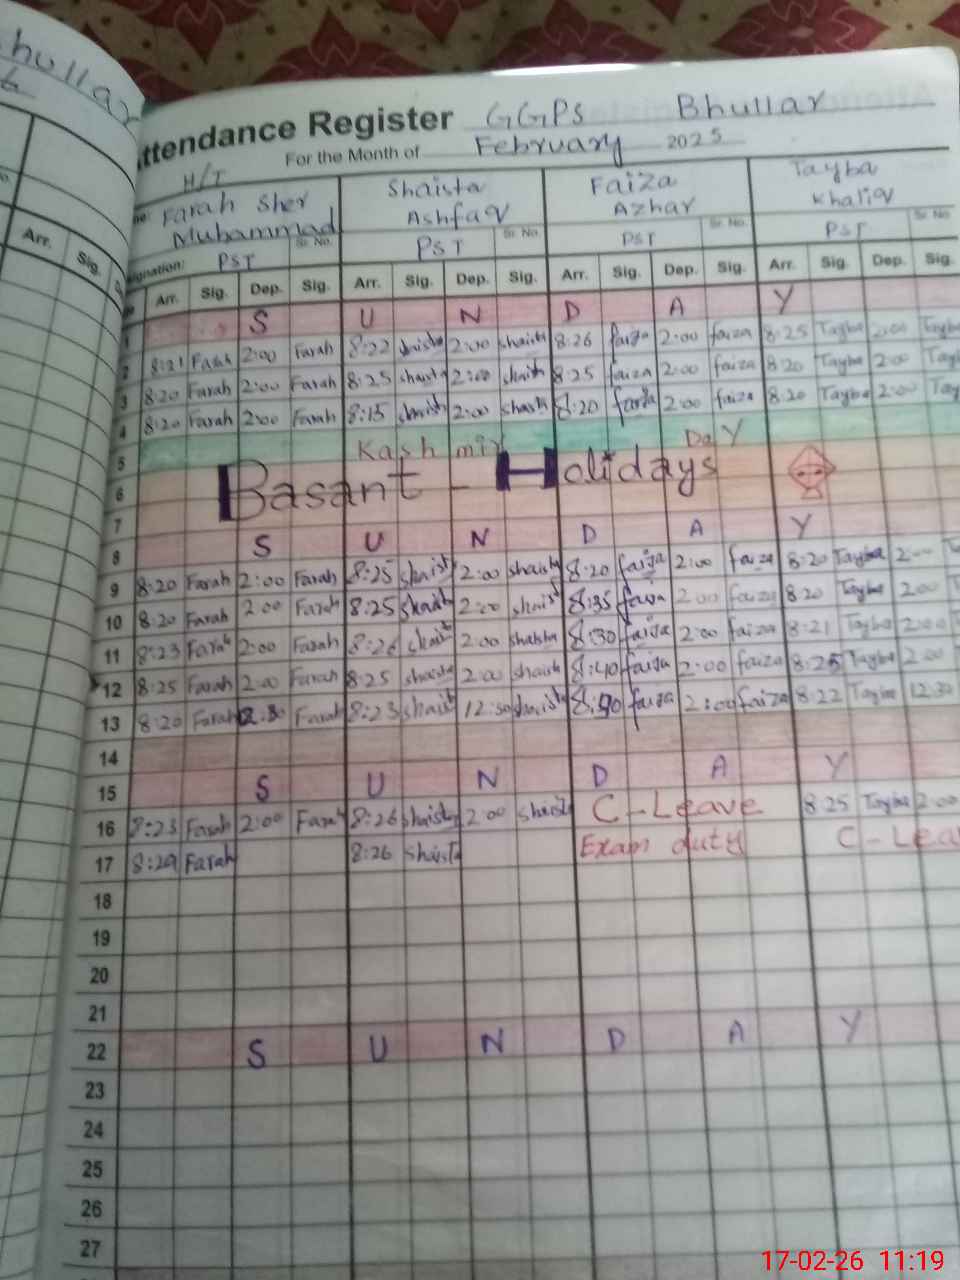 hullar
Arr. Sig.
Attendance Register GGPS Bhullar
For the Month of February 2025
H/T
Farah Sher Muhammad Shaista Ashfaq Faiza Azhar Tayba Khaliq
Sr. No. Sr. No. Sr. No. Sr. No.
Designation: PST PST PST PST
Arr. Sig. Dep. Sig. Arr. Sig. Dep. Sig. Arr. Sig. Dep. Sig. Arr. Sig. Dep. Sig.
1 S U N D A Y
2 8:21 Farah 2:00 Farah 8:22 shaista 2:00 shaista 8:26 faiza 2:00 faiza 8:25 Tayba 2:00 Tayba
3 8:20 Farah 2:00 Farah 8:25 shaista 2:00 shaista 8:25 faiza 2:00 faiza 8:20 Tayba 2:00 Tay
4 8:20 Farah 2:00 Farah 8:15 shaista 2:00 shasta 8:20 faiza 2:00 faiza 8:20 Tayba 2:00 Tay
5 Kashmir Day
6 Basant - Holidays
7
8 S U N D A Y
9 8:20 Farah 2:00 Farah 8:25 shaista 2:00 shaista 8:20 faiza 2:00 faiza 8:20 Tayba 2:00 T
10 8:20 Farah 2:00 Farah 8:25 shaista 2:00 shaist 8:35 faiza 2:00 faiza 8:20 Tayba 2:00
11 8:23 Farah 2:00 Farah 8:26 shaista 2:00 shaista 8:30 faiza 2:00 faiza 8:21 Tayba 2:00
12 8:25 Farah 2:00 Farah 8:25 shaista 2:00 shaista 8:40 faiza 2:00 faiza 8:25 Tayba 2:00
13 8:20 Farah 12:30 Farah 8:23 shaist 12:30 shaista 8:40 faiza 2:00 faiza 8:22 Tayba 12:30
14
15 S U N D A Y
16 8:23 Farah 2:00 Farah 8:26 shaista 2:00 shaista C-Leave 8:25 Tayba 2:00
17 8:29 Farah 8:26 shaista Exam duty C-Lea
18
19
20
21
22 S U N D A Y
23
24
25
26
27
17-02-26 11:19